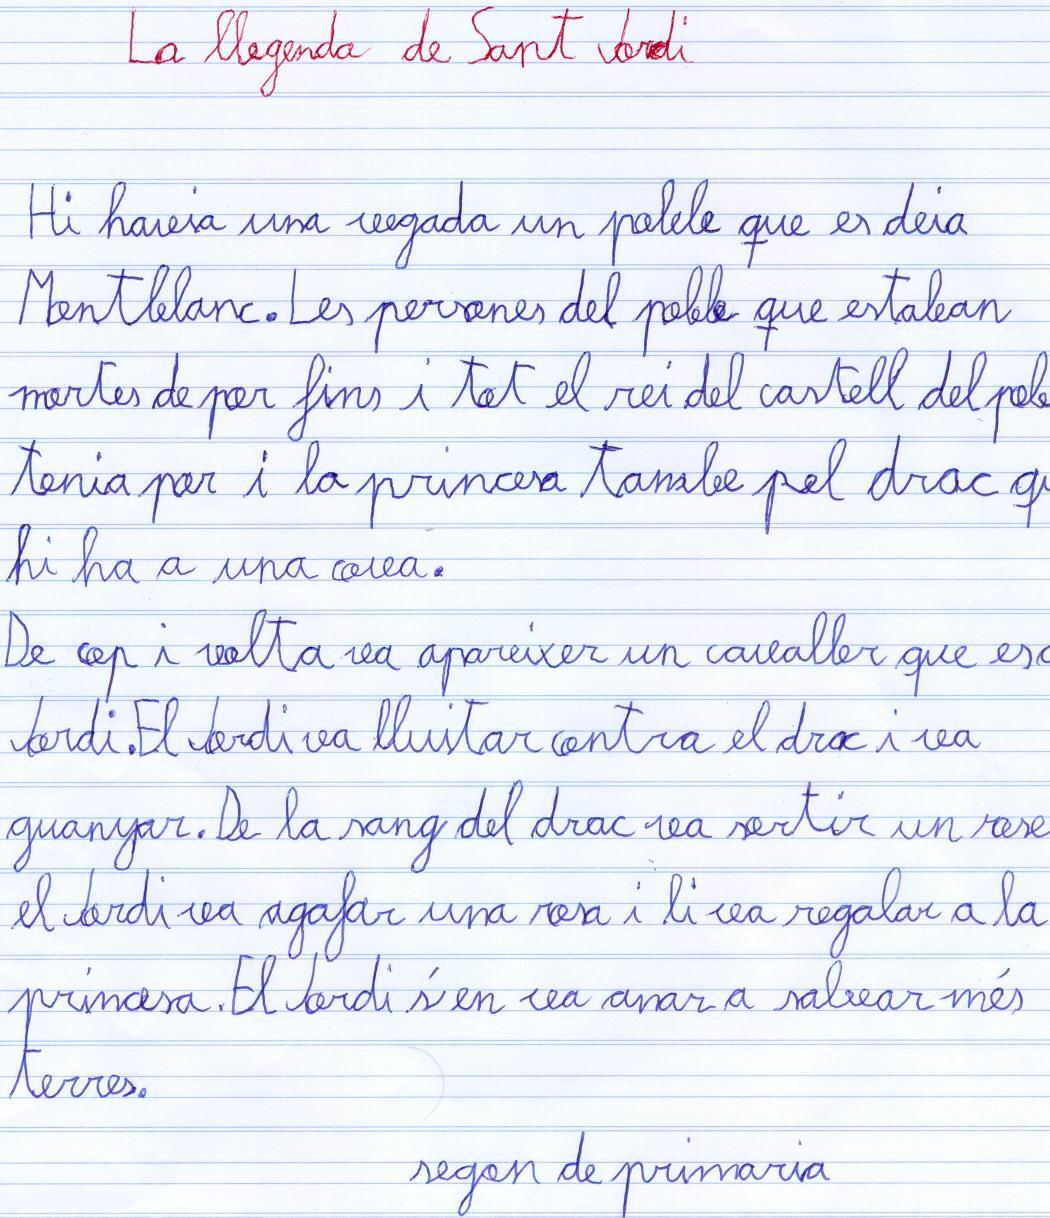 La llegenda de Sant Jordi
Hi havia una vegada un poble que es deia
Montblanc. Les persones del poble que estaban
mortes de por fins i tot el rei del castell del pob
tenia por i la princesa tambe pel drac qu
hi ha a una cova.
De cop i volta va apareixer un cavaller que es
Jordi. El Jordi va lluitar contra el drac i va
guanyar. De la sang del drac va sortir un rose
el Jordi va agafar una rosa i li va regalar a la
princesa. El Jordi s'en va anar a salvar més
terres.
segon de primaria